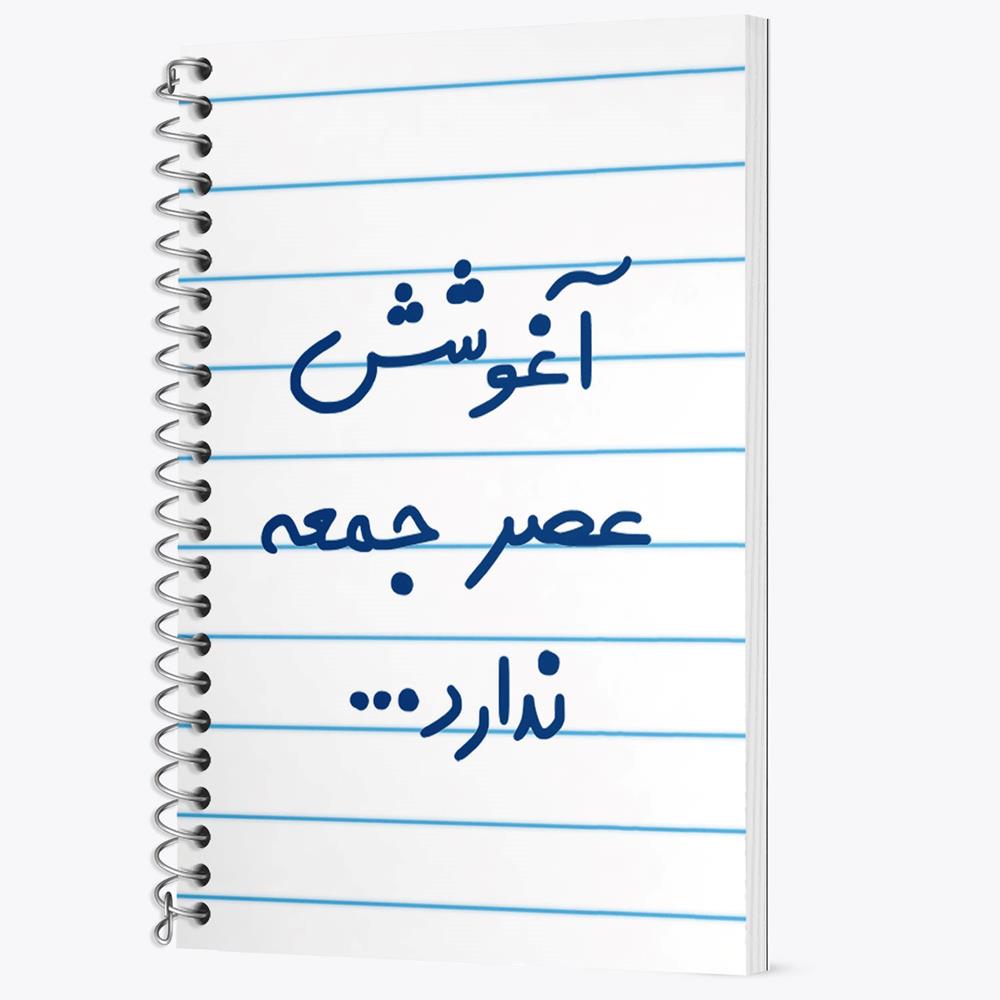 آغوشش
عصر جمعه
ندارد...